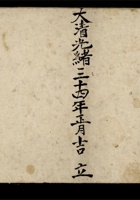 大清光緒三十四年正月吉立